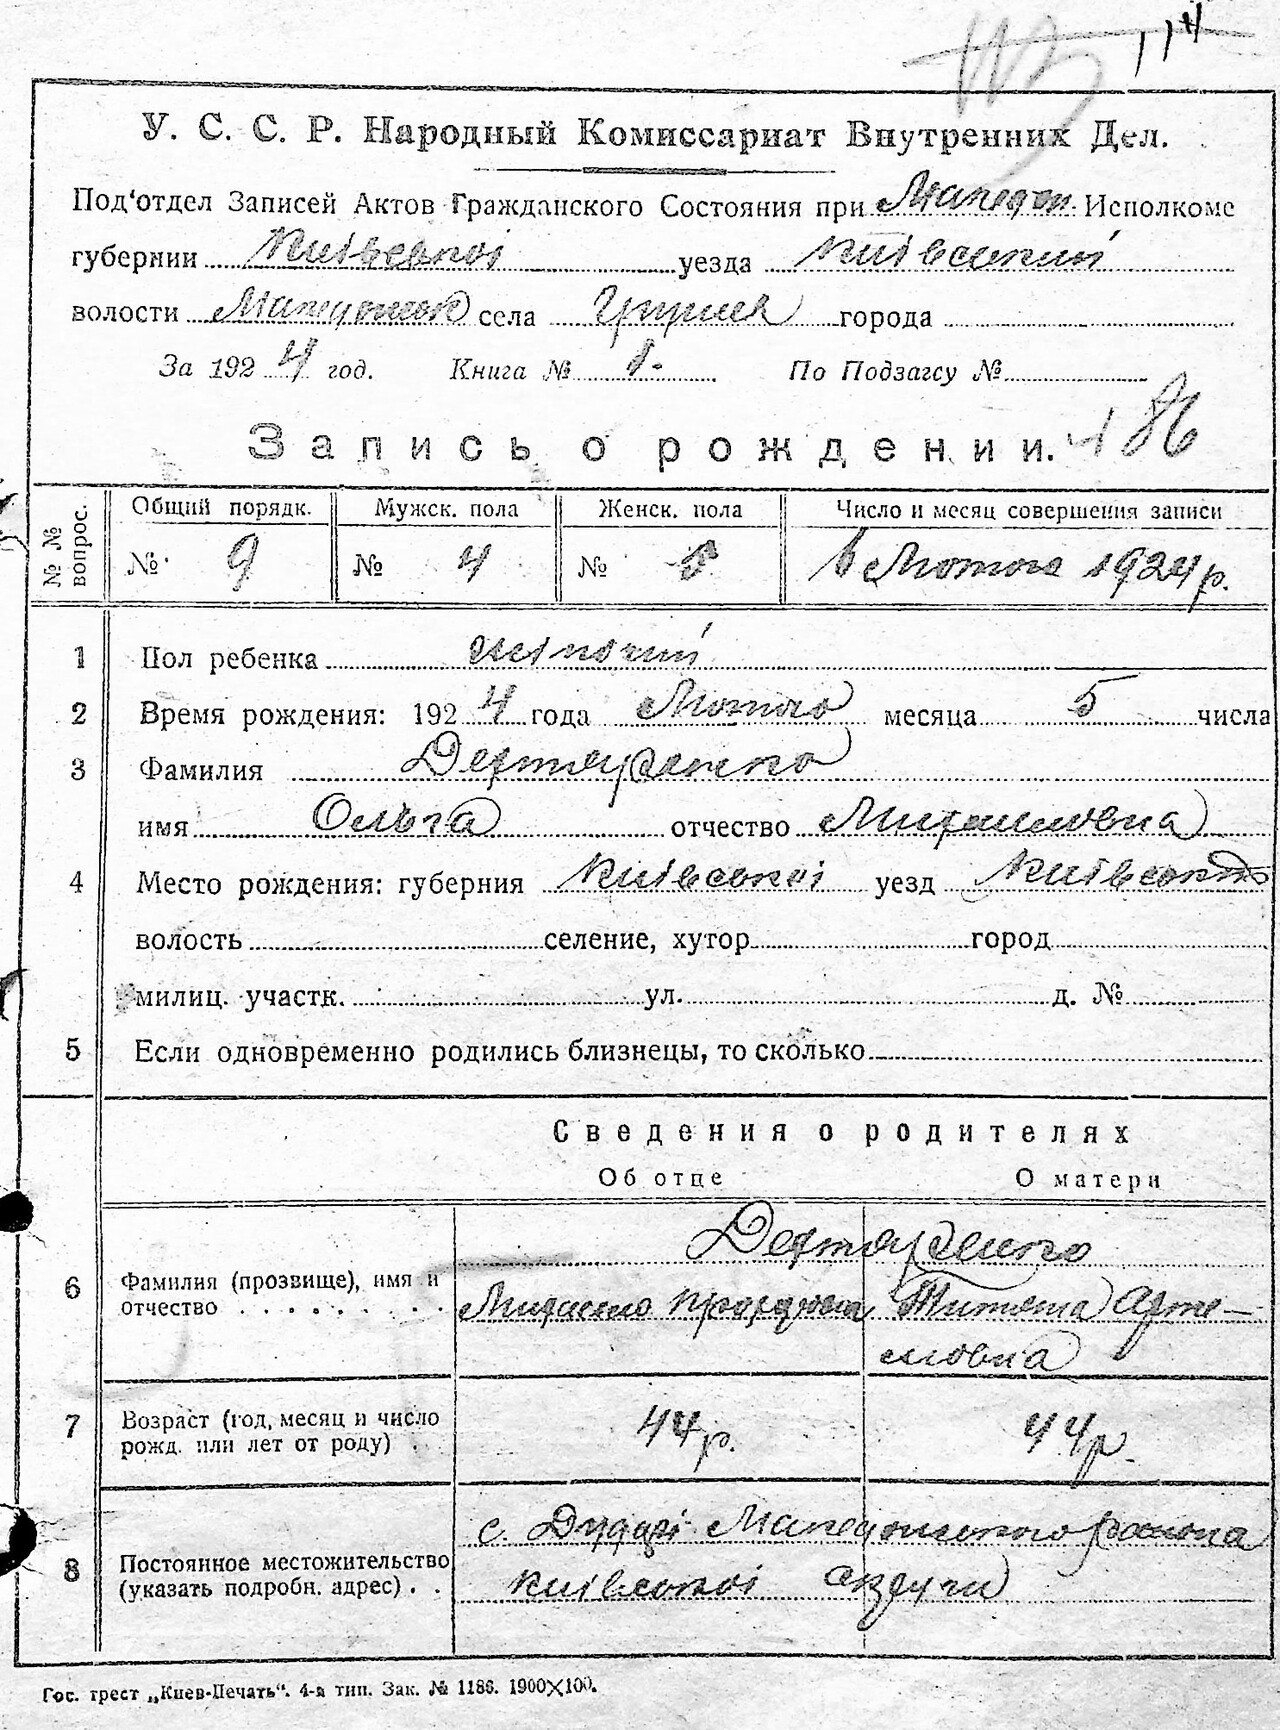 114
У. С. С. Р. Народный Комиссариат Внутренних Дел.
Под‘отдел Записей Актов Гражданского Состояния при Македон. Исполкоме
губернии Київської уезда київський
волости села города
За 1924 год. Книга № 1. По Подзагсу №
Запись о рождении. 186
№ № вопрос.
Общий порядк. Мужск. пола Женск. пола Число и месяц совершения записи
№ 9 № 4 № 5 6 Лютого 1924 р.
1 Пол ребенка жіночий
2 Время рождения: 1924 года Лютого месяца 5 числа
3 Фамилия Дехтяренко
имя Ольга отчество Михайловна
4 Место рождения: губерния Київської уезд Київський
волость селение, хутор город
милиц. участк. ул. д. №
5 Если одновременно родились близнецы, то сколько
Сведения о родителях
Об отце О матери
Дехтяренко
6 Фамилия (прозвище), имя и
отчество Михайло Титяна Арте-
мовна
7 Возраст (год, месяц и число
рожд. или лет от роду) 44 р. 44 р.
с. Дударі Македонського района
8 Постоянное местожительство
(указать подробн. адрес) київської округи
Гос. трест „Киев-Печать“. 4-я тип. Зак. № 1186. 1900×100.